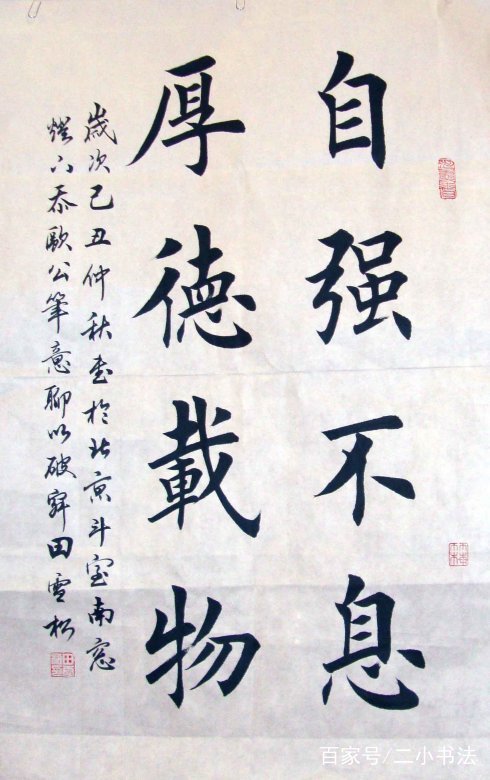 自强不息
厚德載物
歲次己丑仲秋書於北京斗室南窓
燈下忝歐公筆意聊以破寂田雪松
百家号/二小书法